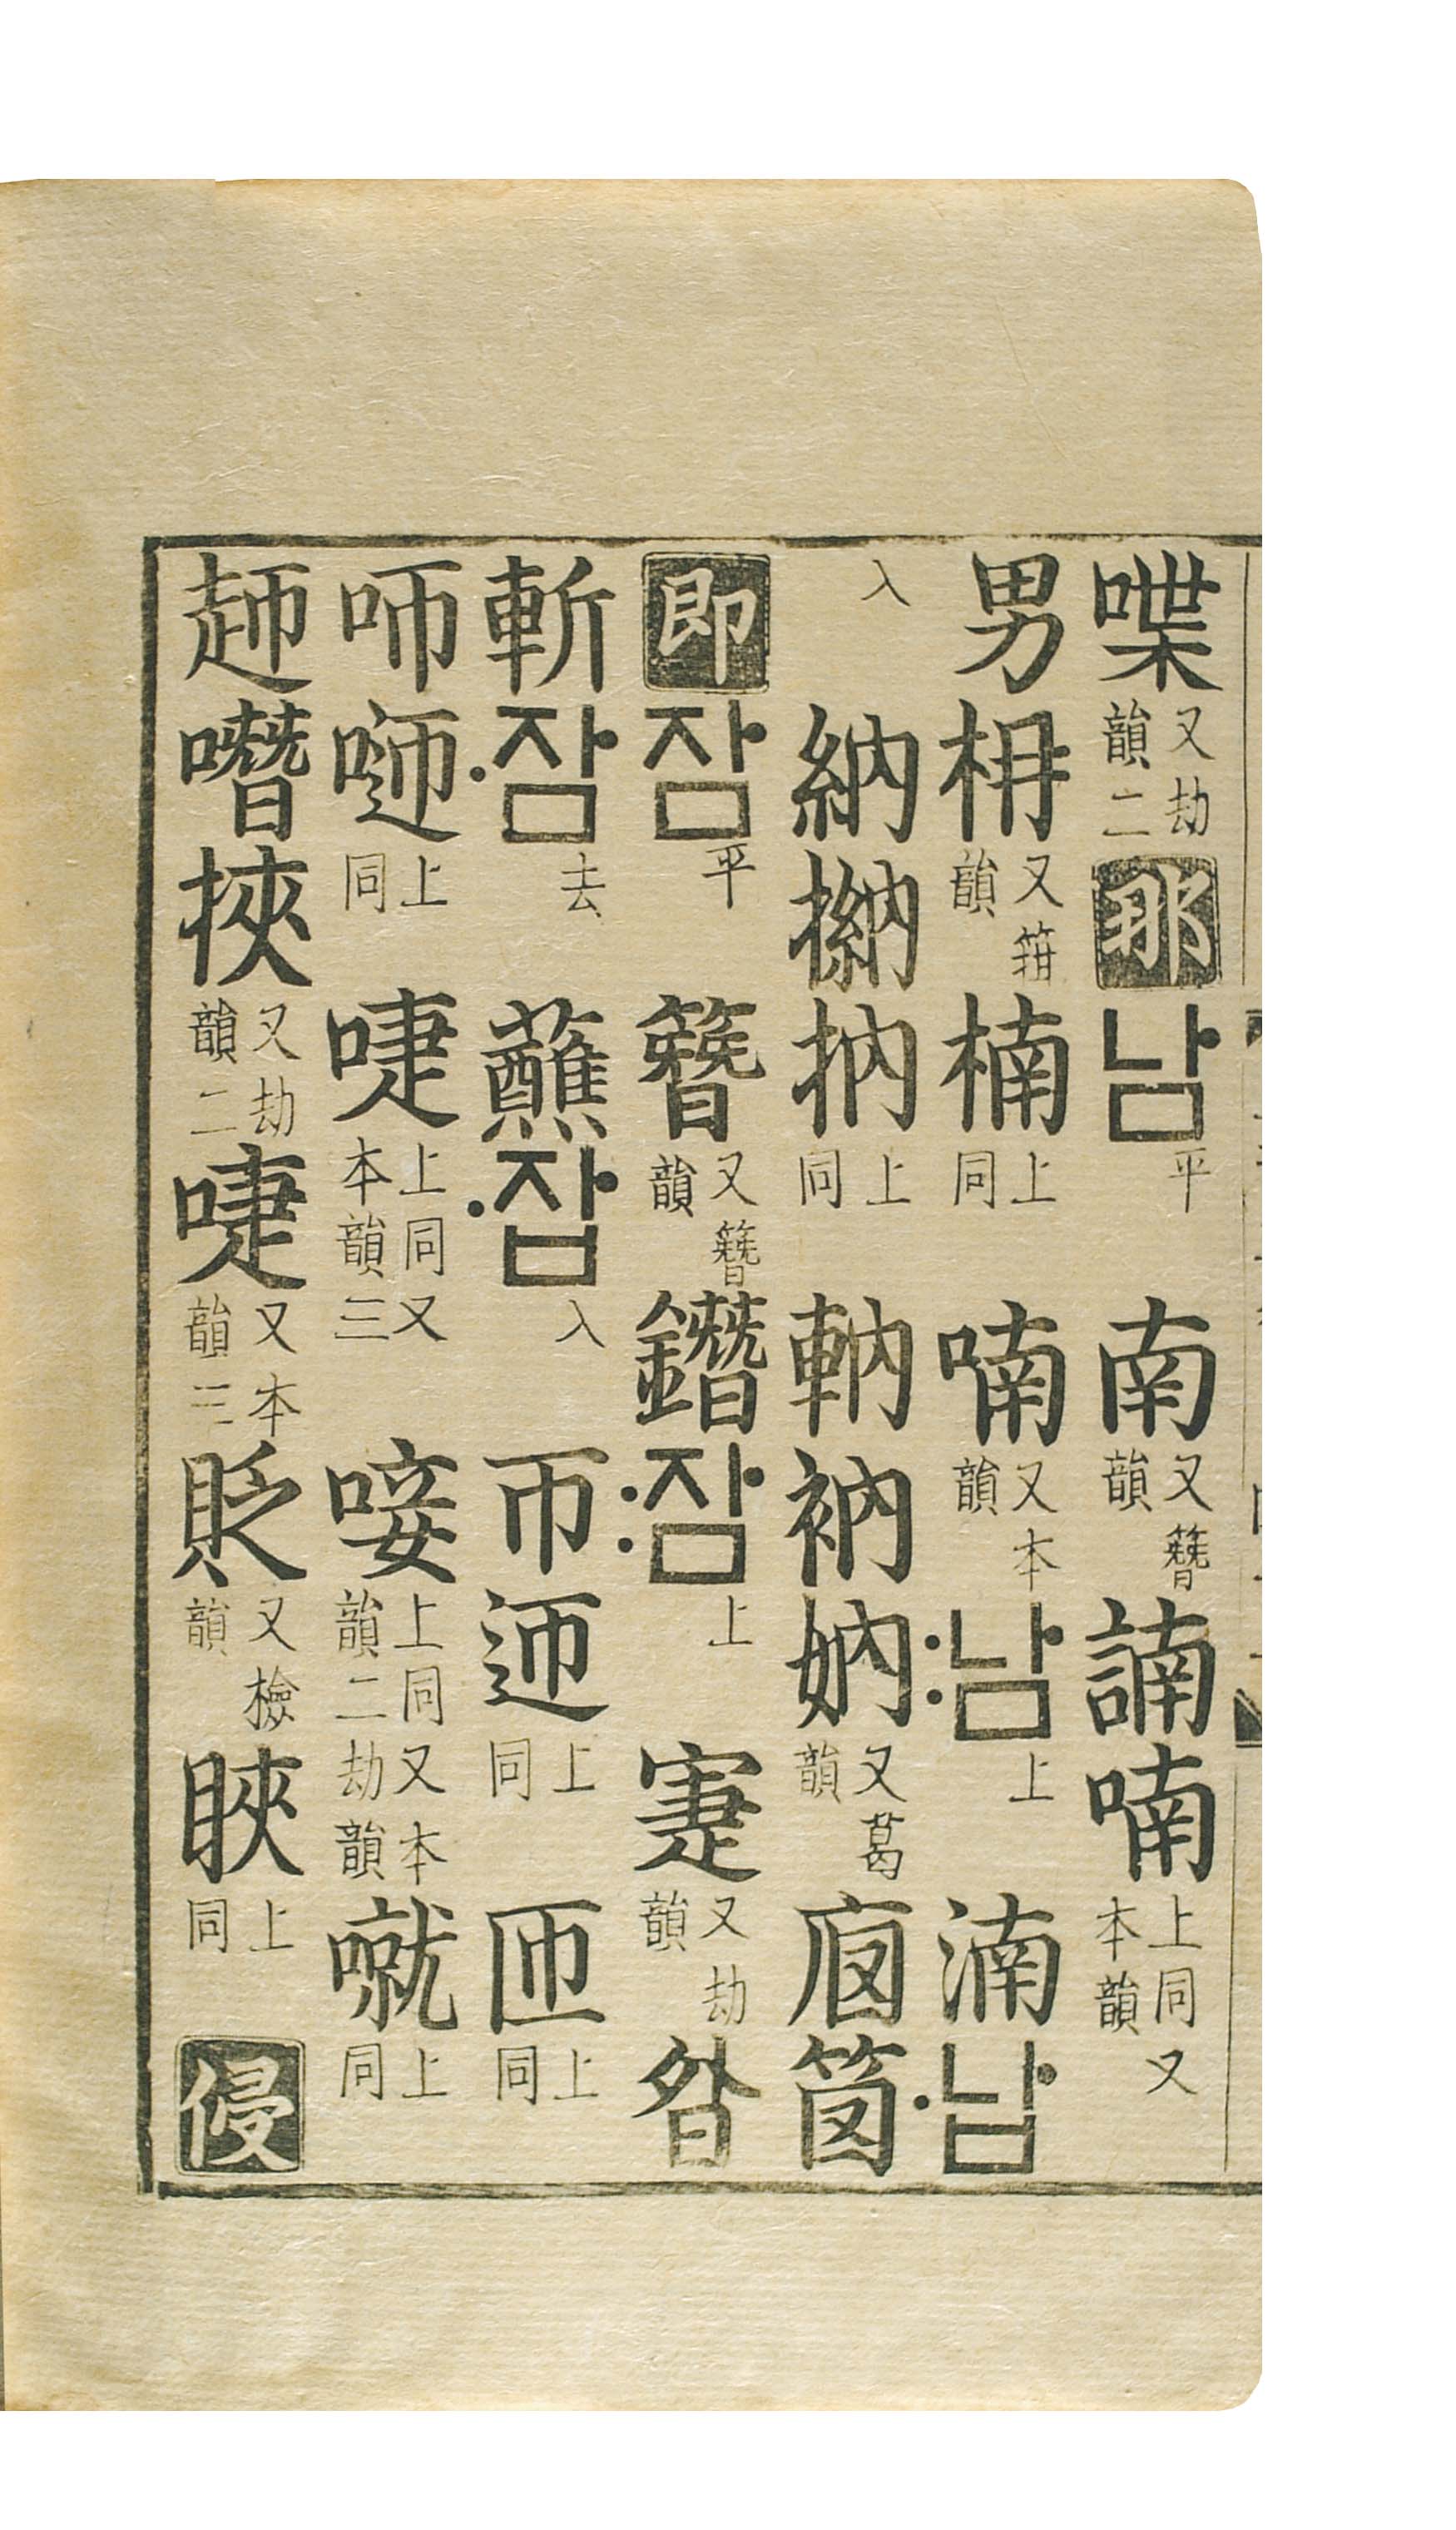 喋 又劫韻二 那 남 平 南 又簪韻 諵 喃 上同又本韻
男 枏 又箝韻 楠 上同 喃 又本韻 〯남 上 湳 〮남
入 納 抐 上同 軜 衲 妠 又葛韻
即 잠 平 簪 又簪韻 鐕 〯잠 上 寁 又劫韻 昝
斬 〮잠 去 蘸 〮잠 入 帀 迊 上同 匝 上同
𠯗 上同 啑 上同又本韻三 唼 上同又本韻二劫韻 噈 上同
噆 挾 又劫韻二 啑 又本韻三 貶 又檢韻 䀹 上同 侵